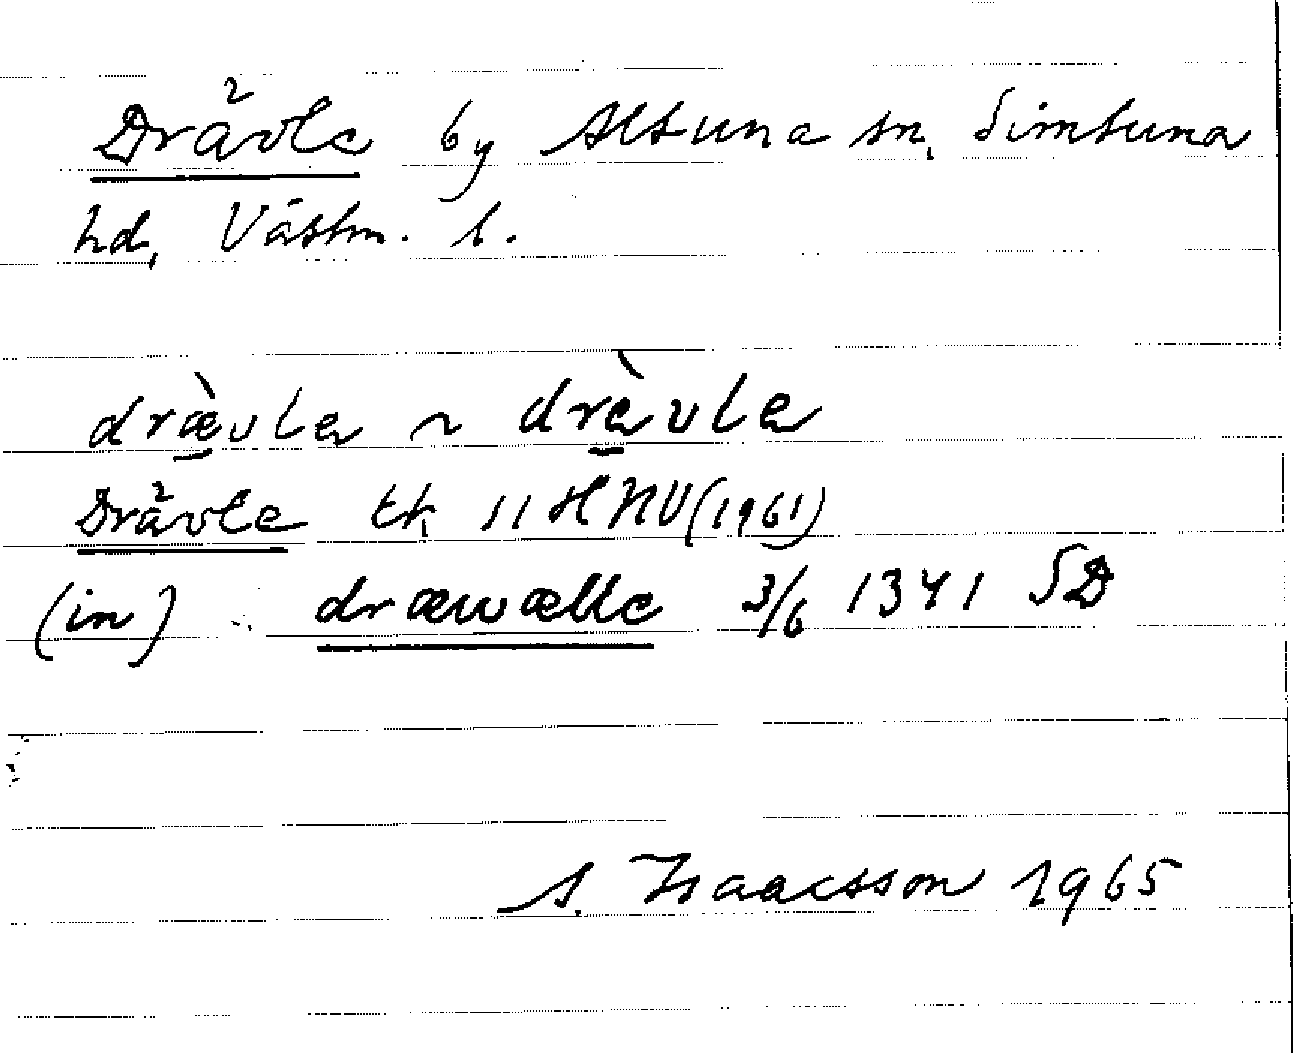 Drävle by Altuna sn, Simtuna
hd, Västm. l.
dræ̀vlɐ ~ drèvlɐ
Drävle tk 11 H NV (1961)
(in) dræwælle 3/6 1341 SD
A. Isaacsson 1965